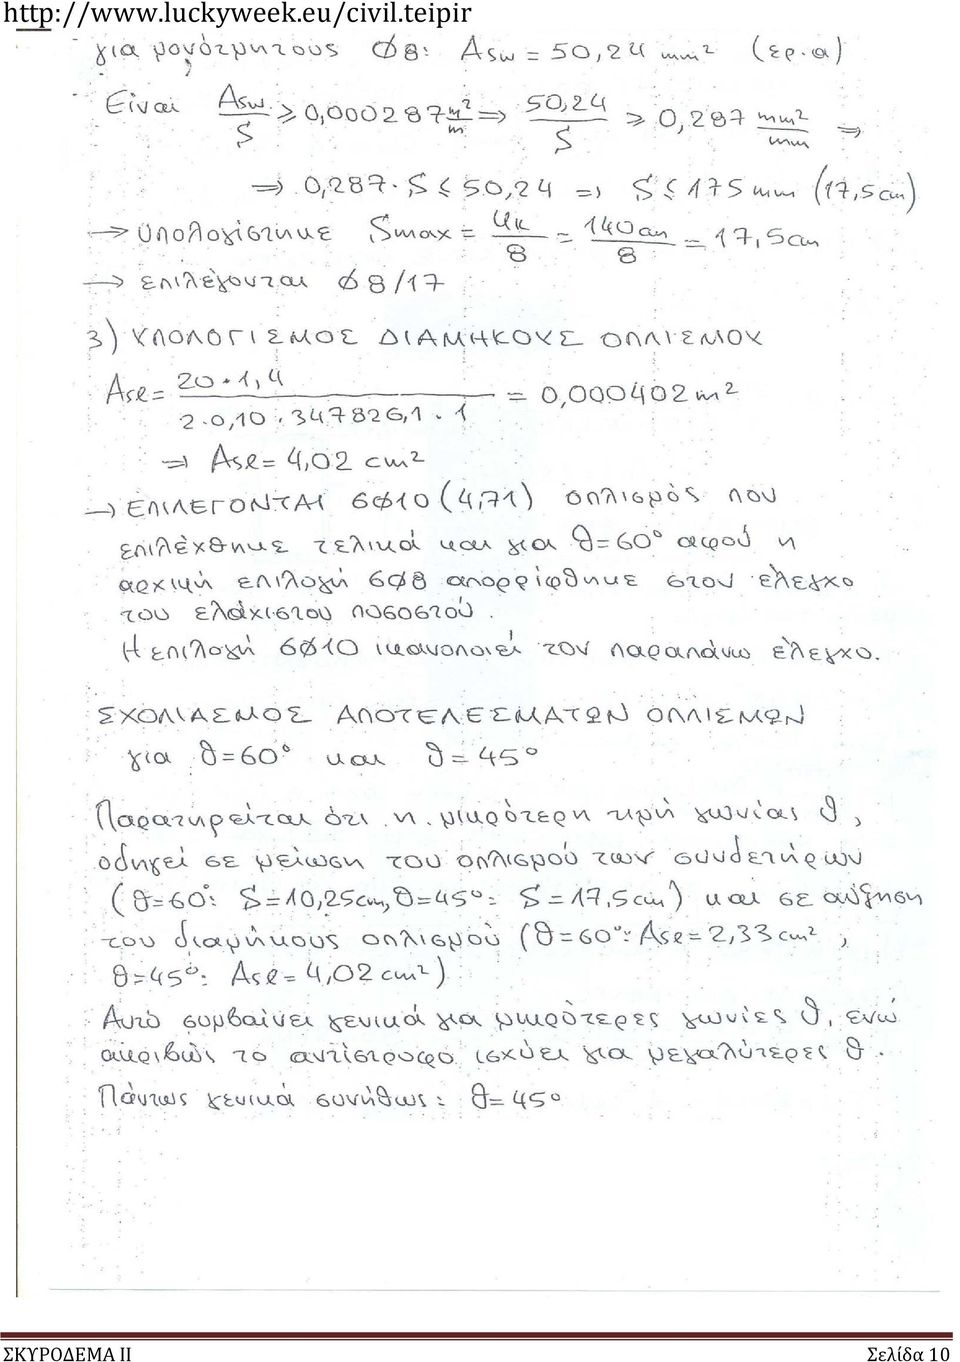 http://www.luckyweek.eu/civil.teipir
για μονότμητους Ø8: Asw = 50,24 mm² (ερ.α)
Είναι Asw/S ≥ 0,000287 m²/m => 50,24/S ≥ 0,287 mm²/mm =>
=> 0,287·S ≤ 50,24 => S ≤ 175 mm (17,5 cm)
→ υπολογίστηκε Smax = uk/8 = 140cm/8 = 17,5cm
→ επιλέγονται Ø8/17
3) ΥΠΟΛΟΓΙΣΜΟΣ ΔΙΑΜΗΚΟΥΣ ΟΠΛΙΣΜΟΥ
Asl = 20·1,4 / 2·0,10·347826,1·1 = 0,000402 m²
=> Asl = 4,02 cm²
→ ΕΠΙΛΕΓΟΝΤΑΙ 6Ø10 (4,71) οπλισμός που
επιλέχθηκε τελικά και για θ=60° αφού η
αρχική επιλογή 6Ø8 απορρίφθηκε στον έλεγχο
του ελάχιστου ποσοστού.
Η επιλογή 6Ø10 ικανοποιεί τον παραπάνω έλεγχο.
ΣΧΟΛΙΑΣΜΟΣ ΑΠΟΤΕΛΕΣΜΑΤΩΝ ΟΠΛΙΣΜΩΝ
για θ=60° και θ=45°
Παρατηρείται ότι η μικρότερη τιμή γωνίας θ,
οδηγεί σε μείωση του οπλισμού των συνδετήρων
(θ=60°: S=10,25cm, θ=45°: S=17,5cm) και σε αύξηση
του διαμήκους οπλισμού (θ=60°: Asl=2,33 cm²,
θ=45°: Asl=4,02 cm²)
Αυτό συμβαίνει γενικά για μικρότερες γωνίες θ, ενώ
ακριβώς το αντίστροφο ισχύει για μεγαλύτερες θ.
Πάντως γενικά συνήθως: θ=45°
ΣΚΥΡΟΔΕΜΑ ΙΙ Σελίδα 10